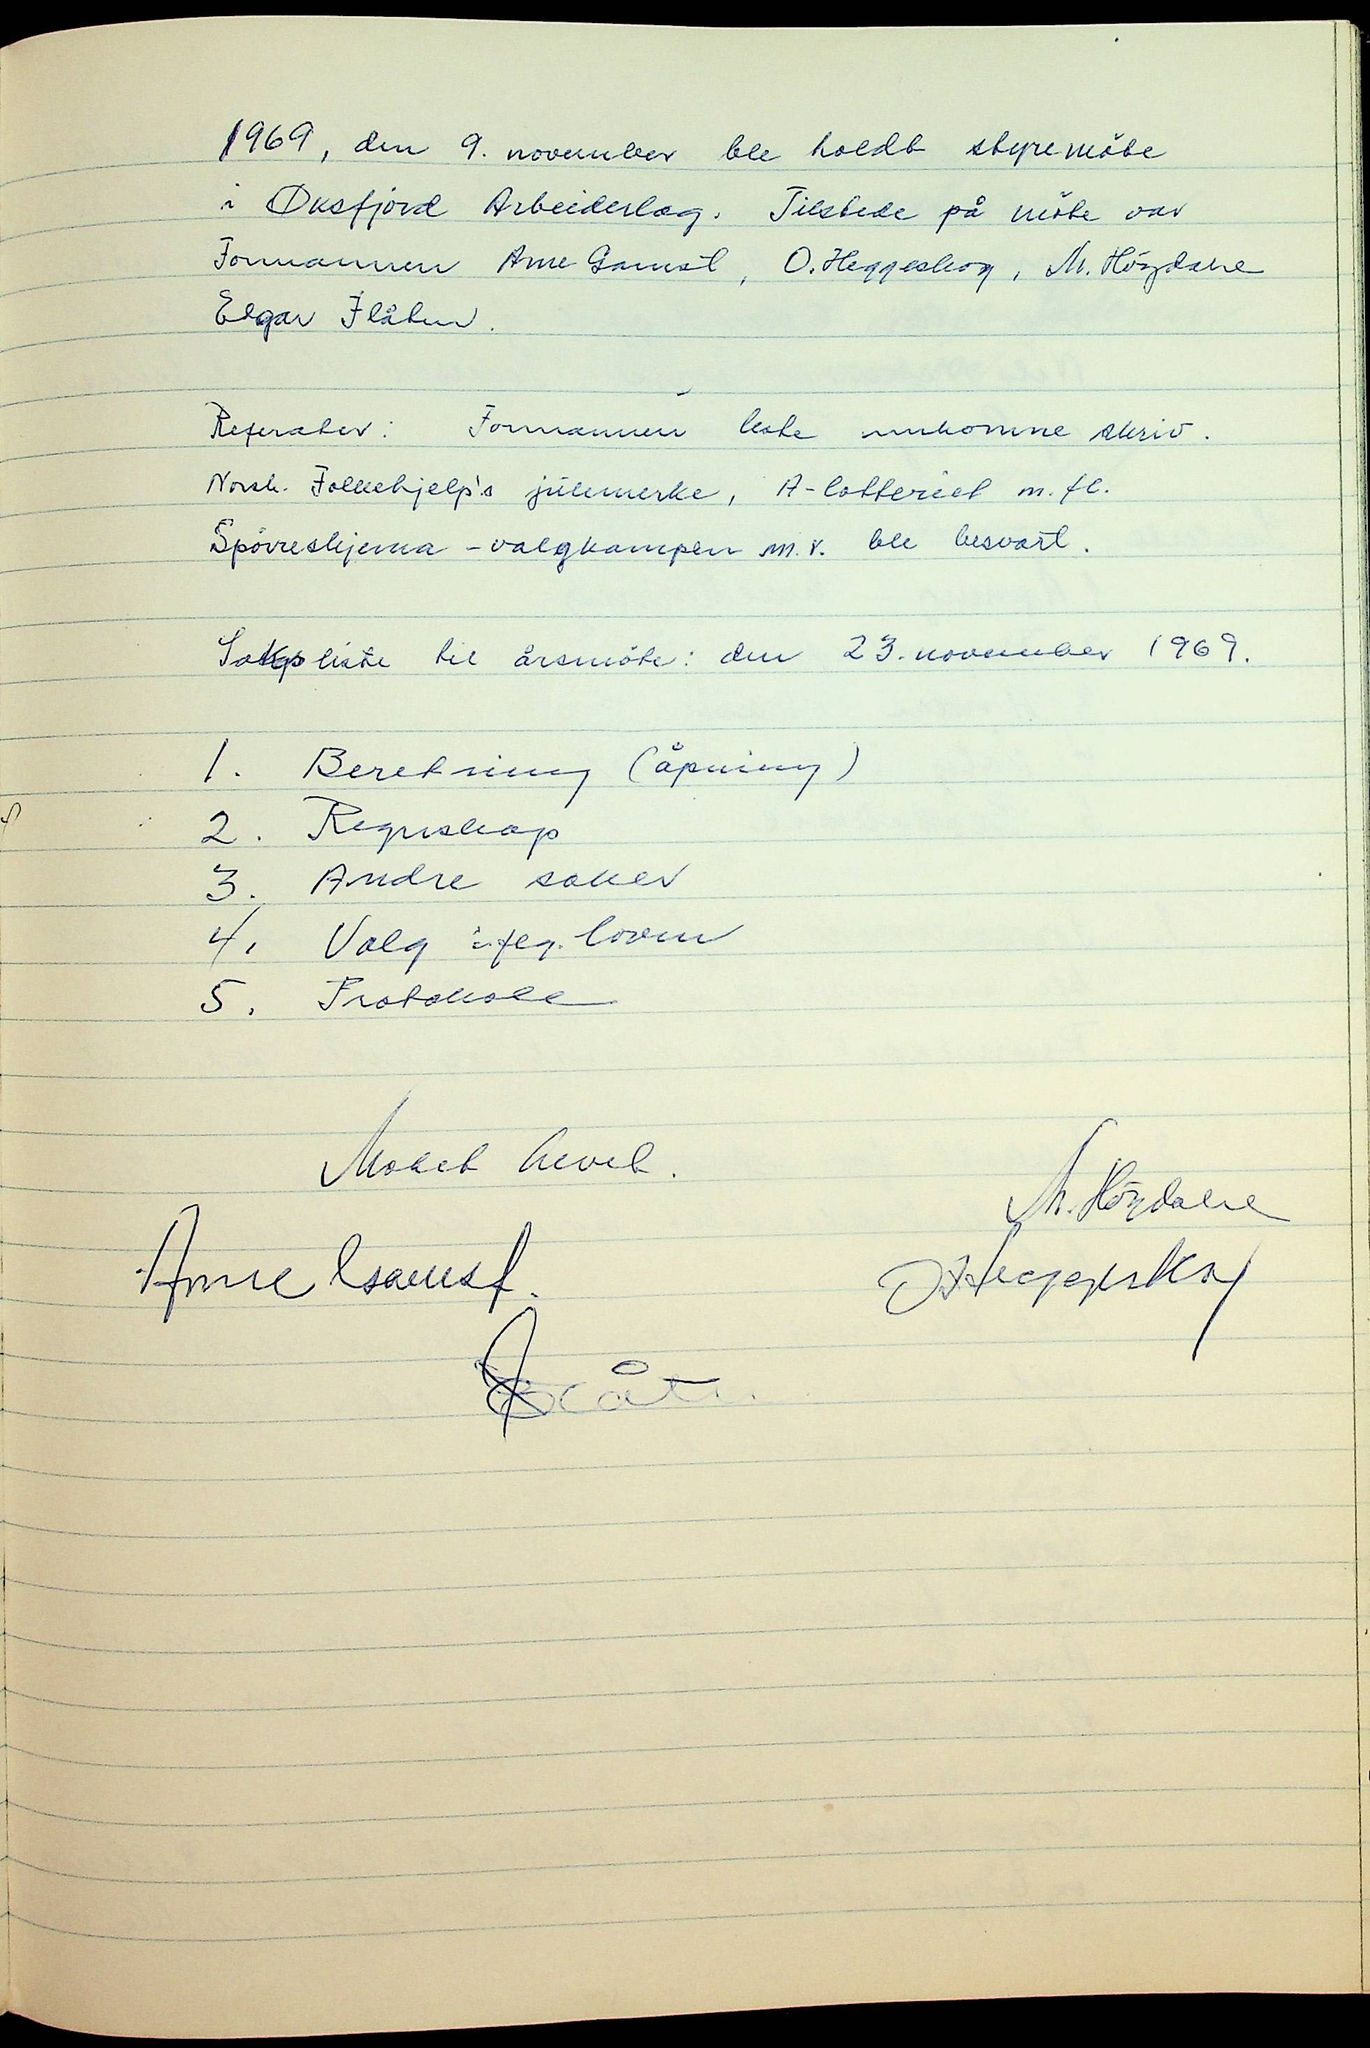 1969, den 9. november ble holdt styremöte
i Øksfjord Arbeiderlag. Tilstede på möte var
Formannen Arne Gamst, O. Heggeskog, M. Högdahl
Elgar Flåten.
Referater: Formannen leste innkomne skriv.
Norsk. Folkehjelp's julemerke, A-lotteriet m. fl.
Spörreskjema - valgkampen m.v. ble besvart.
Saksliste til årsmöte: den 23. november 1969.
1. Beretning (åpning)
2. Regnskap
3. Andre saker
4. Valg iflg. loven
5. Protokoll
Mötet hevet.
M. Högdahl
Arne Gamst.
O Heggeskog